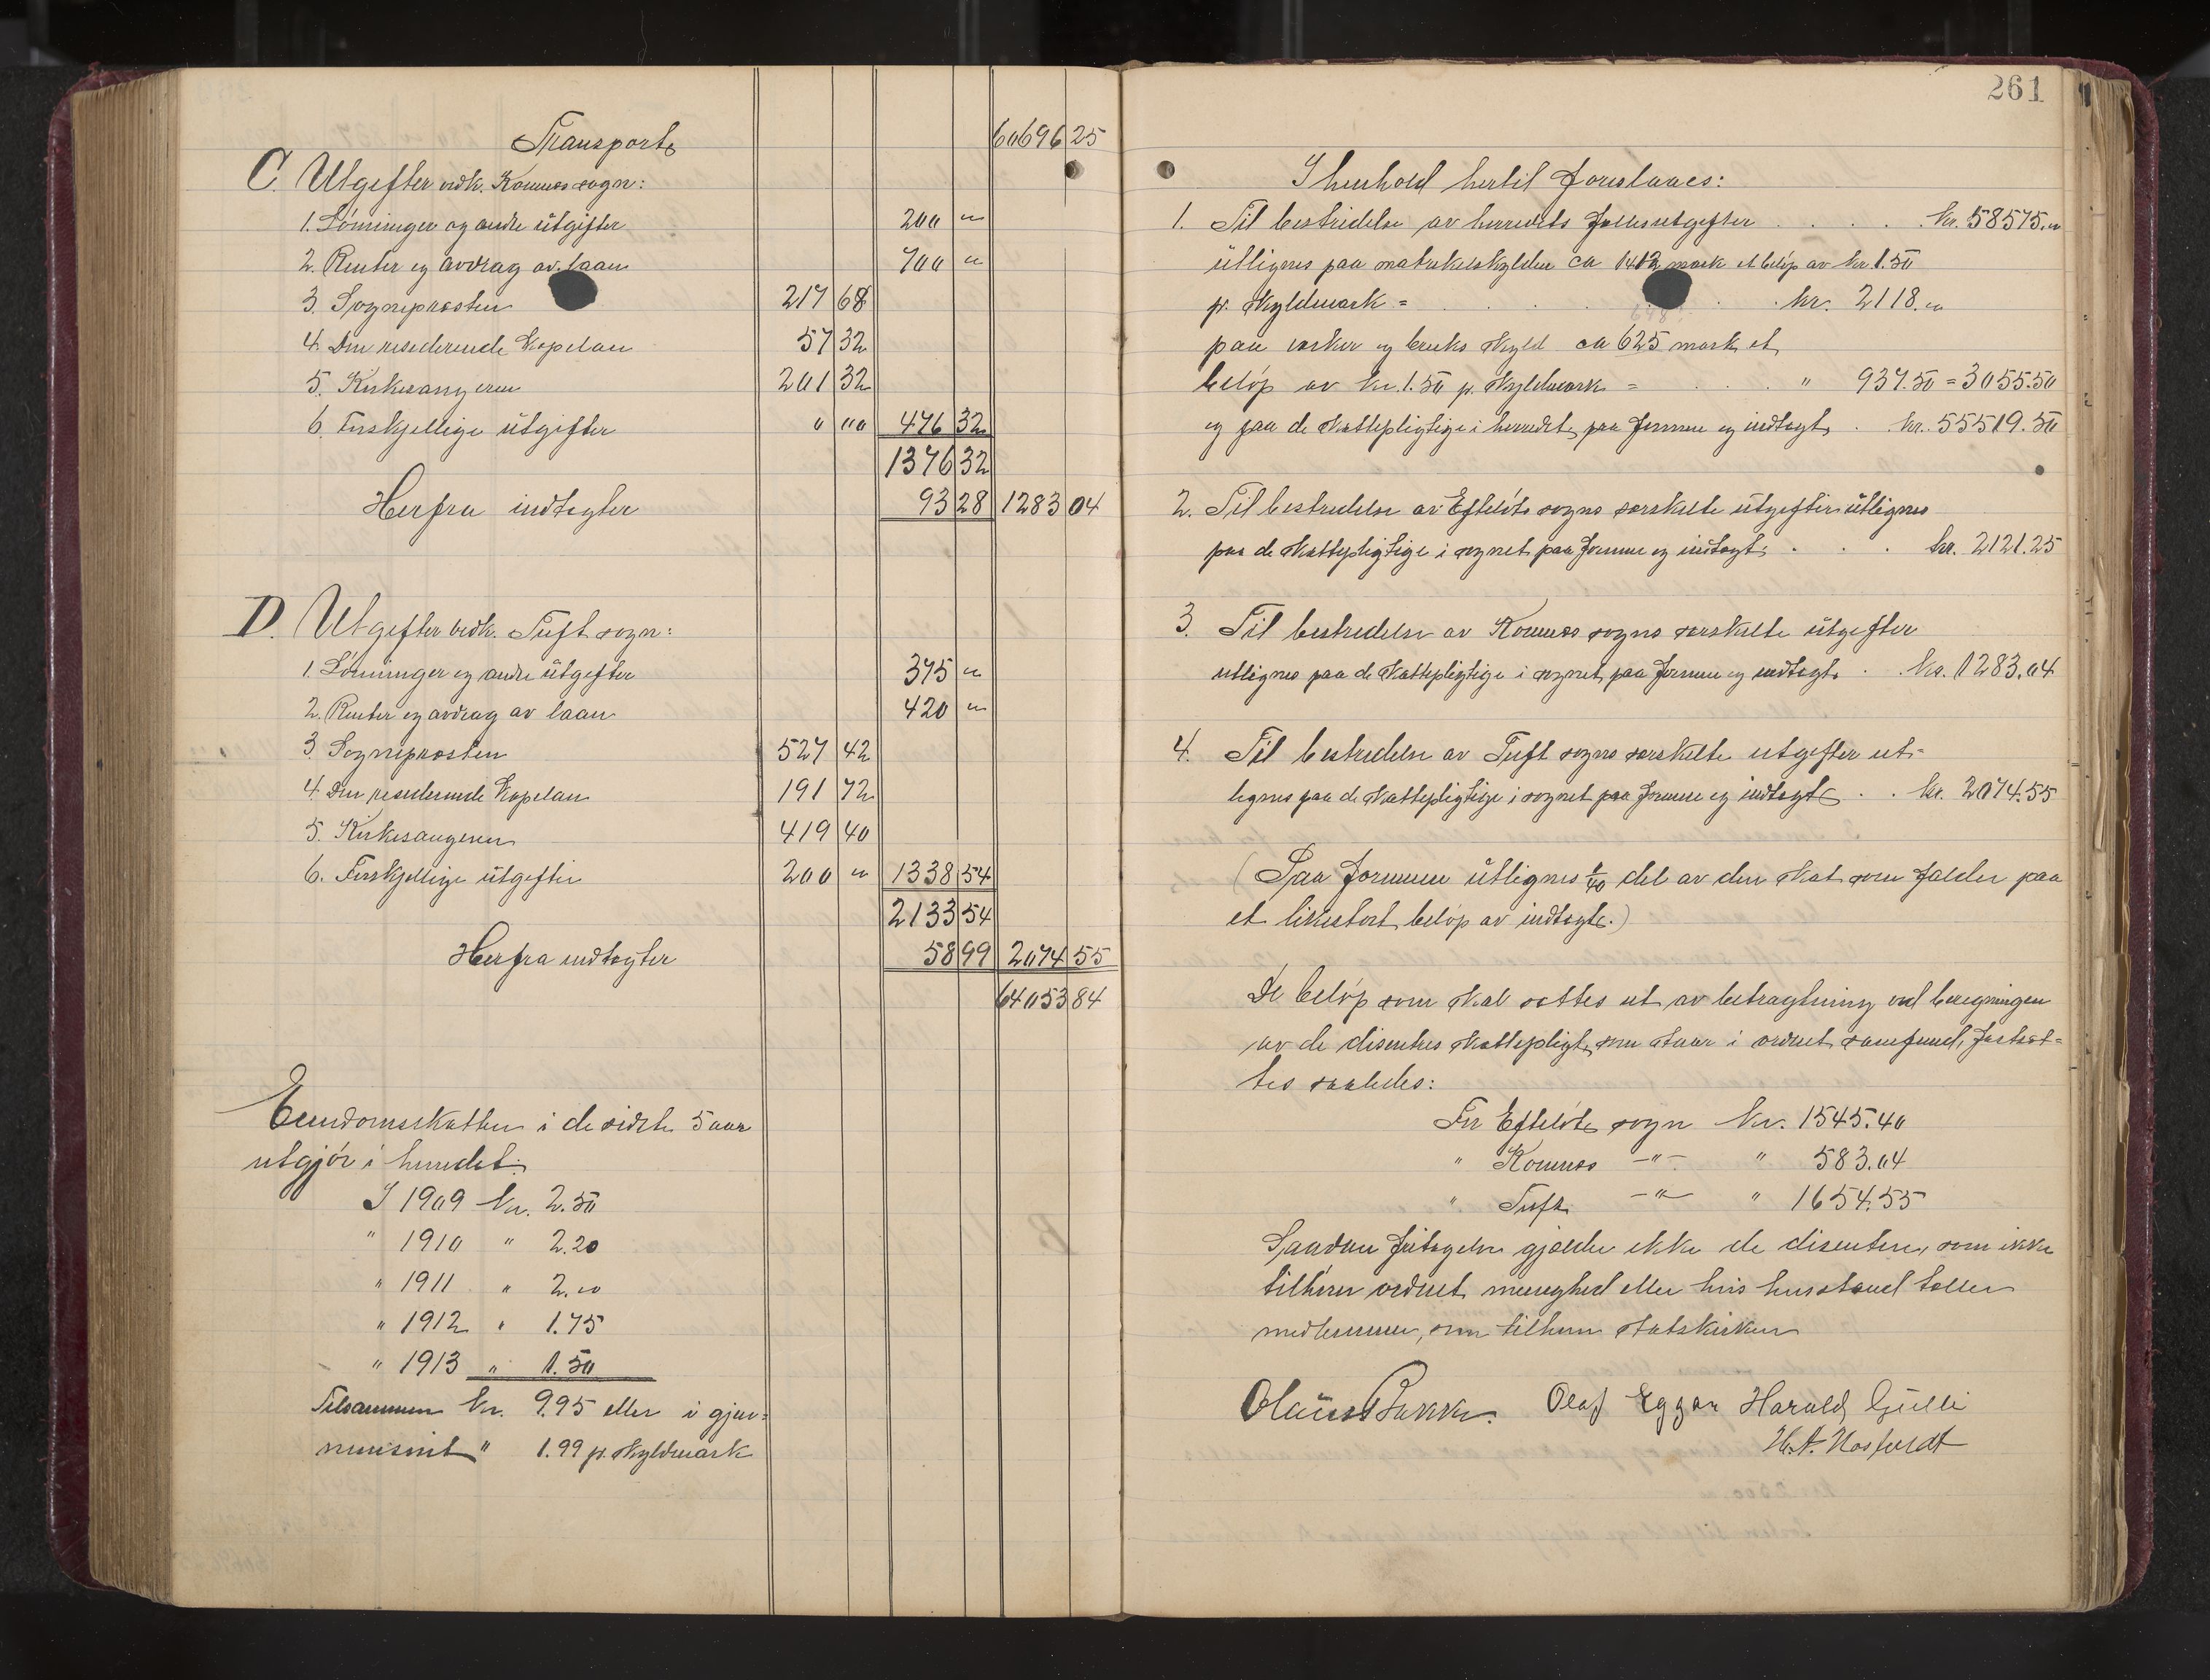 Transport 60696 25
C. Utgifter vedk. Komnes sogn:
1. Lønninger og andre utgifter 200 "
2. Renter og avdrag av laan 700 "
3. Sognepræsten 217 68
4. Den residerende Kapelan 57 32
5. Kirkesangeren 201 32
6. Forskjellige utgifter " " 476 32
1376 32
Herfra indtægter 93 28 1283 04
D. Utgifter vedk. Tuft sogn:
1. Lønninger og andre utgifter 375 "
2. Renter og avdrag av laan 420 "
3. Sognepræsten 527 42
4. Den residerende Kapelan 191 72
5. Kirkesangeren 419 40
6. Forskjellige utgifter 200 " 1338 54
2133 54
Herfra indtægter 58 99 2074 55
64053 84
Eiendomsskatten i de sidste 5 aar
utgjør i herredet:
I 1909 Kr. 2.50
" 1910 " 2.20
" 1911 " 2.00
" 1912 " 1.75
" 1913 " 1.50
Tilsammen Kr. 9.95 eller i gjen=
nemsnit " 1.99 pr. skyldmark
261
I henhold hertil foreslaaes:
1. Til bestridelse av herredets fællesutgifter . . . . Kr. 58575.00
utlignes paa matrikelskylden ca 1412 mark et beløp av kr. 1.50
pr. skyldmark = . . . . . kr. 2118.00
paa verker og bruks skyld ca 625 mark et
beløp av kr. 1.50 pr. skyldmark = . . . " 937.50 = 3055.50
og paa de skattepligtige i herredet paa formue og indtægt . kr. 55519.50
2. Til bestridelse av Efteløts sogns særskilte utgifter utlignes
paa de skattepligtige i sognet paa formue og indtægt . . . kr. 2121.25
3. Til bestridelse av Komnes sogns særskilte utgifter
utlignes paa de skattepligtige i sognet paa formue og indtægt . . Kr. 1283.04
4. Til bestridelse av Tuft sogns særskilte utgifter ut=
lignes paa de skattepligtige i sognet paa formue og indtægt . . kr. 2074.55
(Paa formuen utlignes del av den skat som falder paa
et likestort beløp av indtægt.)
De beløp som skal sættes ut av betragtning ved beregningen
av de disenters skattepligt, som staar i ordnet samfund, fastsæt=
tes saaledes:
For Efteløts sogn Kr. 1545.40
" Komnes —"— " 583.04
" Tuft —"— " 1654.55
Saadan fritagelse gjælder ikke de disentere, som ikke
tilhører ordnet menighed eller hvis husstand tæller
medlemmer, som tilhører statskirken
Olaus Bakke. Olaf Eggar Harald Gulli
H. A.